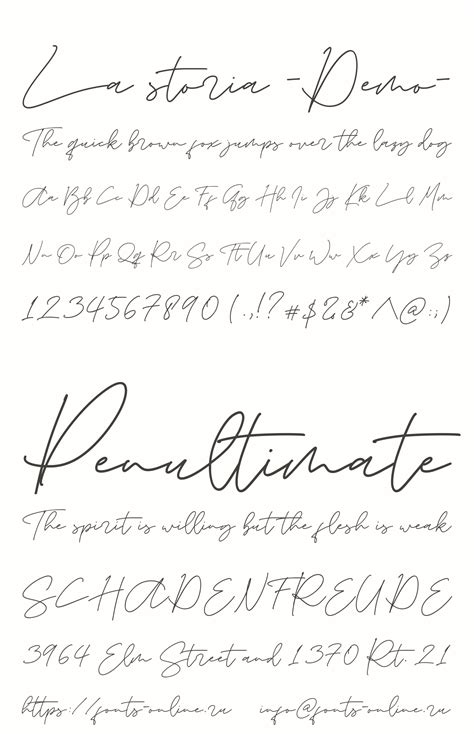 La storia -Demo-
The quick brown fox jumps over the lazy dog
Aa Bb Cc Dd Ee Ff Gg Hh Ii Jj Kk Ll Mm
Nn Oo Pp Qq Rr Ss Tt Uu Vv Ww Xx Yy Zz
1234567890 (.,!? #$&* ^@:;)
Penultimate
The spirit is willing but the flesh is weak
SCHADENFREUDE
3964 Elm Street and 1370 Rt. 21
https://fonts-online.ru info@fonts-online.ru